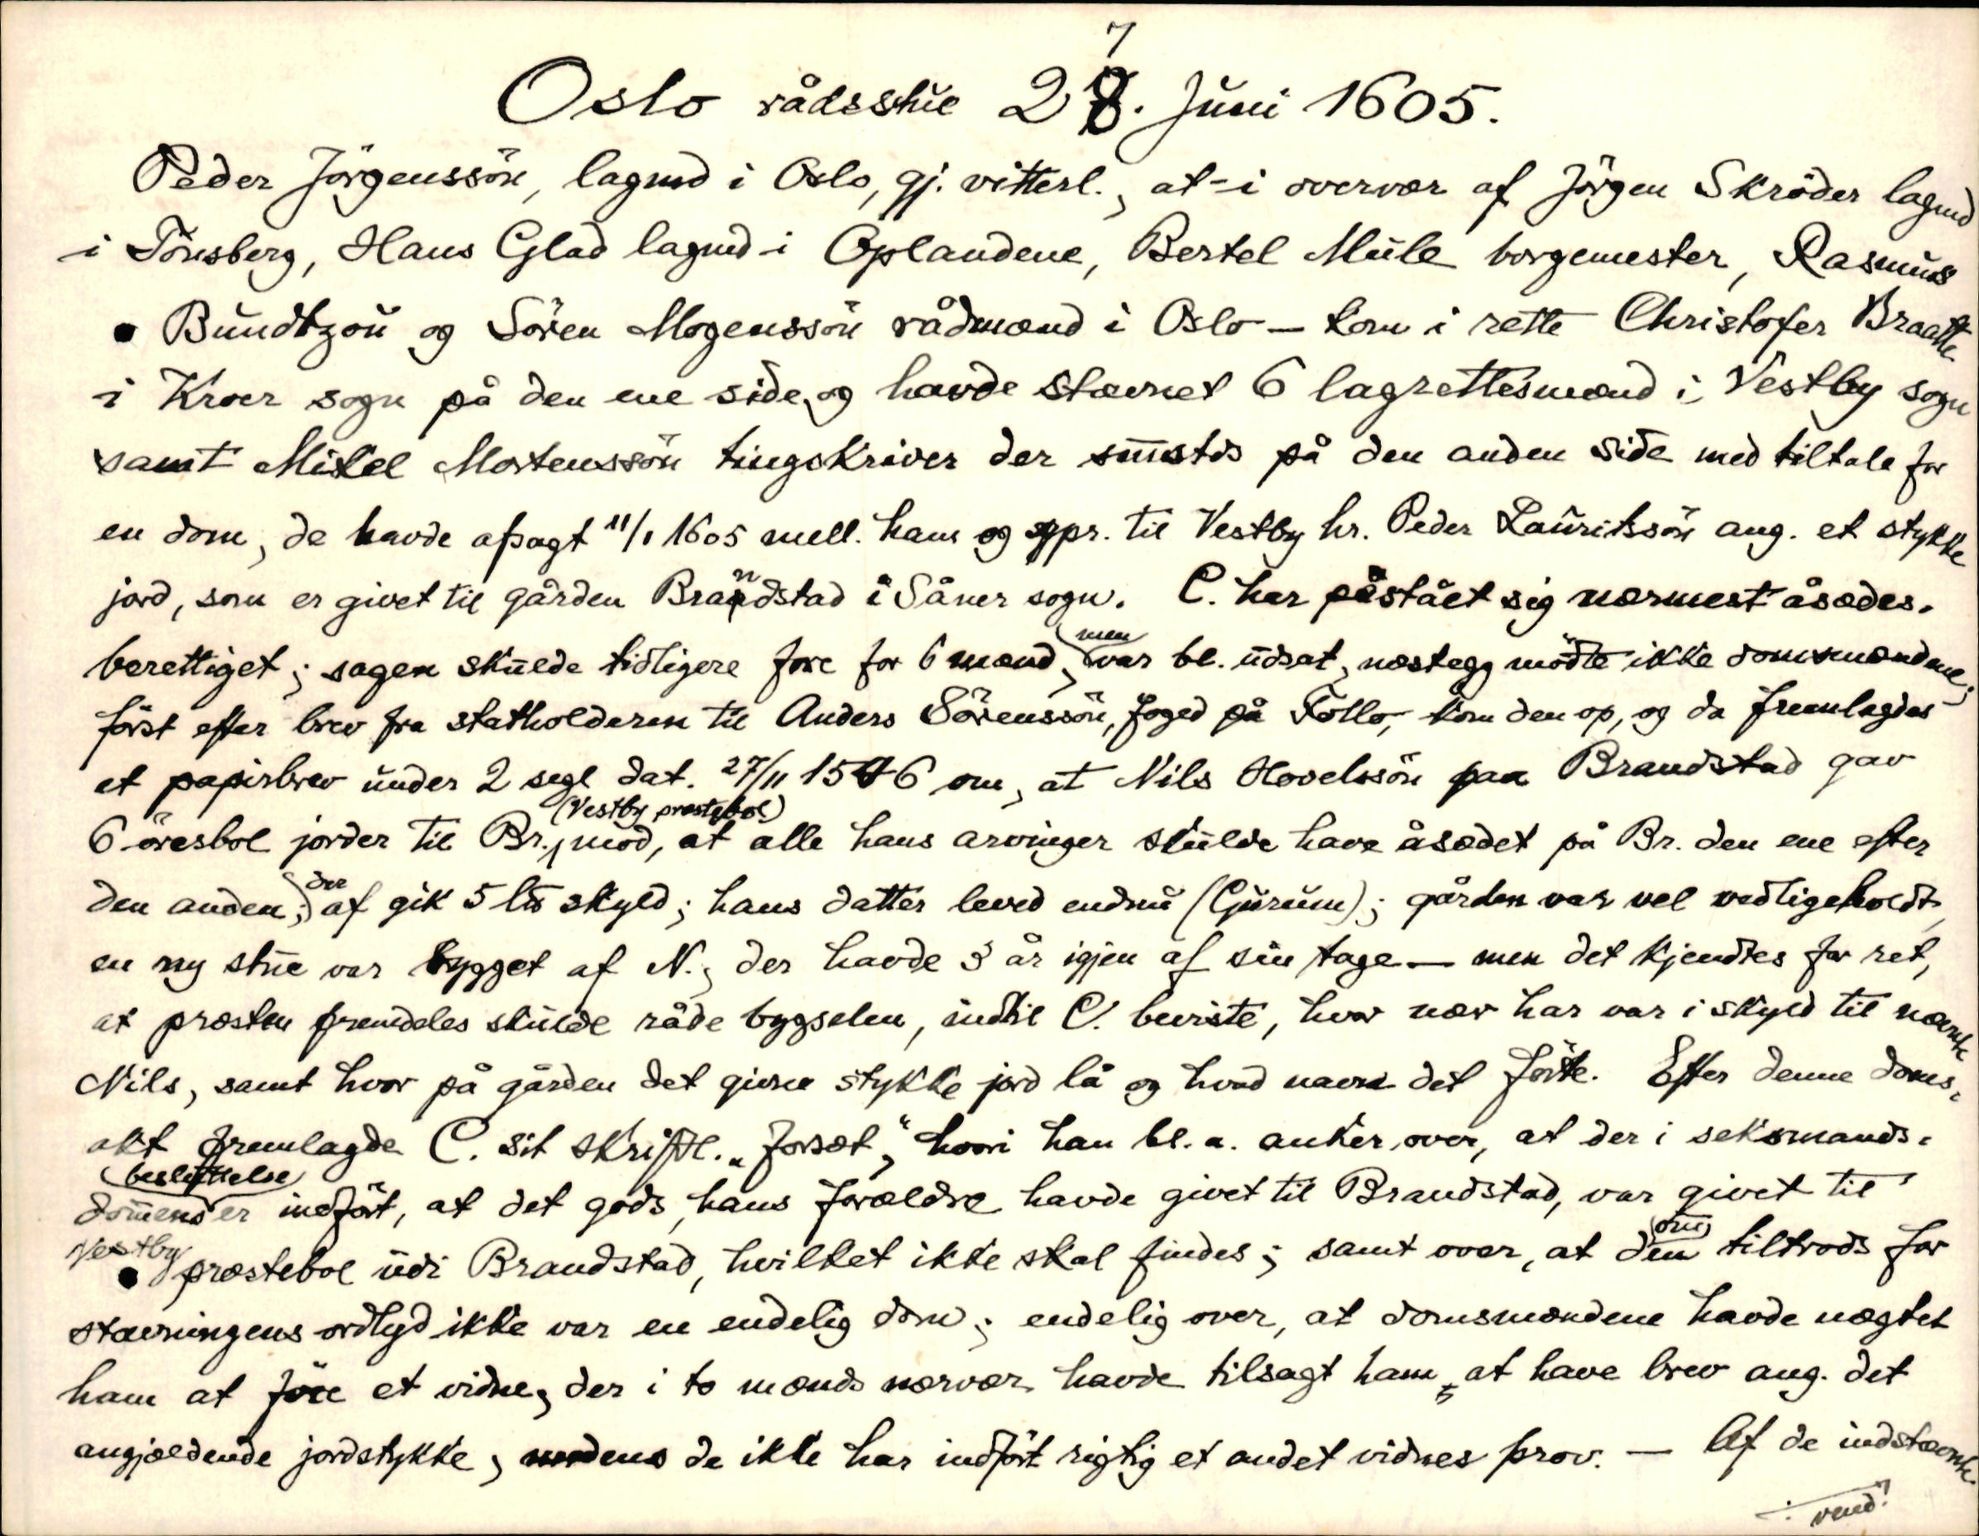 Oslo rådsstue 27. Juni 1605.
Peder Jörgenssön, lagmd i Oslo, gj. vitterl., at - i overvær af Jörgen Skröder lagmd
i Tönsberg, Hans Glad lagmd i Oplandene, Bertel Mule borgemester, Rasmus
Bundtzon og Sören Mogenssön rådmænd i Oslo - kom i rette Christofer Braatte
i Kroer sogn på den ene side, og havde stævnet 6 lagrettesmænd i Vestby sogn
samt Mikel Mortenssön tingskriver der smstds på den anden side med tiltale for
en dom, de havde afsagt 11/1 1605 mell. ham og sgpr. til Vestby hr. Peder Lauritssön ang. et stykke
jord, som er givet til gården Brandstad i Såner sogn. C. har påstået sig nærmest åsædes-
berettiget; sagen skulde tidligere fore for 6 mænd, men var bl. udsat, næstegg mödte ikke domsmændene;
först efter brev fra statholderen til Anders Sörenssön, foged på Follo, kom den op, og da fremlagdes
et papirbrev under 2 segl dat. 27/11 1546 om, at Nils Hovelssön paa Brandstad gav
6 öresbol jorder til Br. (Vestby præstebol) mod, at alle hans arvinger skulde have åsædet på Br. den ene efter
den anden; der af gik 5 lts skyld; hans datter leved endnu (Gurum); gården var vel vedligeholdt,
en ny stue var bygget af N., der havde 3 år igjen af sin tage - men det kjendtes for ret,
at præsten fremdeles skulde råde bygselen, indtil C. beviste, hvor nær han var i skyld til nævnte
Nils, samt hvor på gården det givne stykke jord lå og hvad navn det förte. Efter denne doms-
akt fremlagde C. sit skriftl. "forsæt," hvori han bl. a. anker over, at der i seksmands-
domens besluttelse er indfört, at det gods, hans forældre havde givet til Brandstad, var givet til
Vestby præstebol udi Brandstad, hvilket ikke skal findes; samt over, at domen tiltrods for
stævningens ordlyd ikke var en endelig dom; endelig over, at domsmændene havde nægtet
ham at före et vidne, der i to mænds nærvær havde tilsagt ham, at have brev ang. det
angjældende jordstykke, medens de ikke har indfört rigtig et andet vidnes prov. - Af de indstævnte
vend!